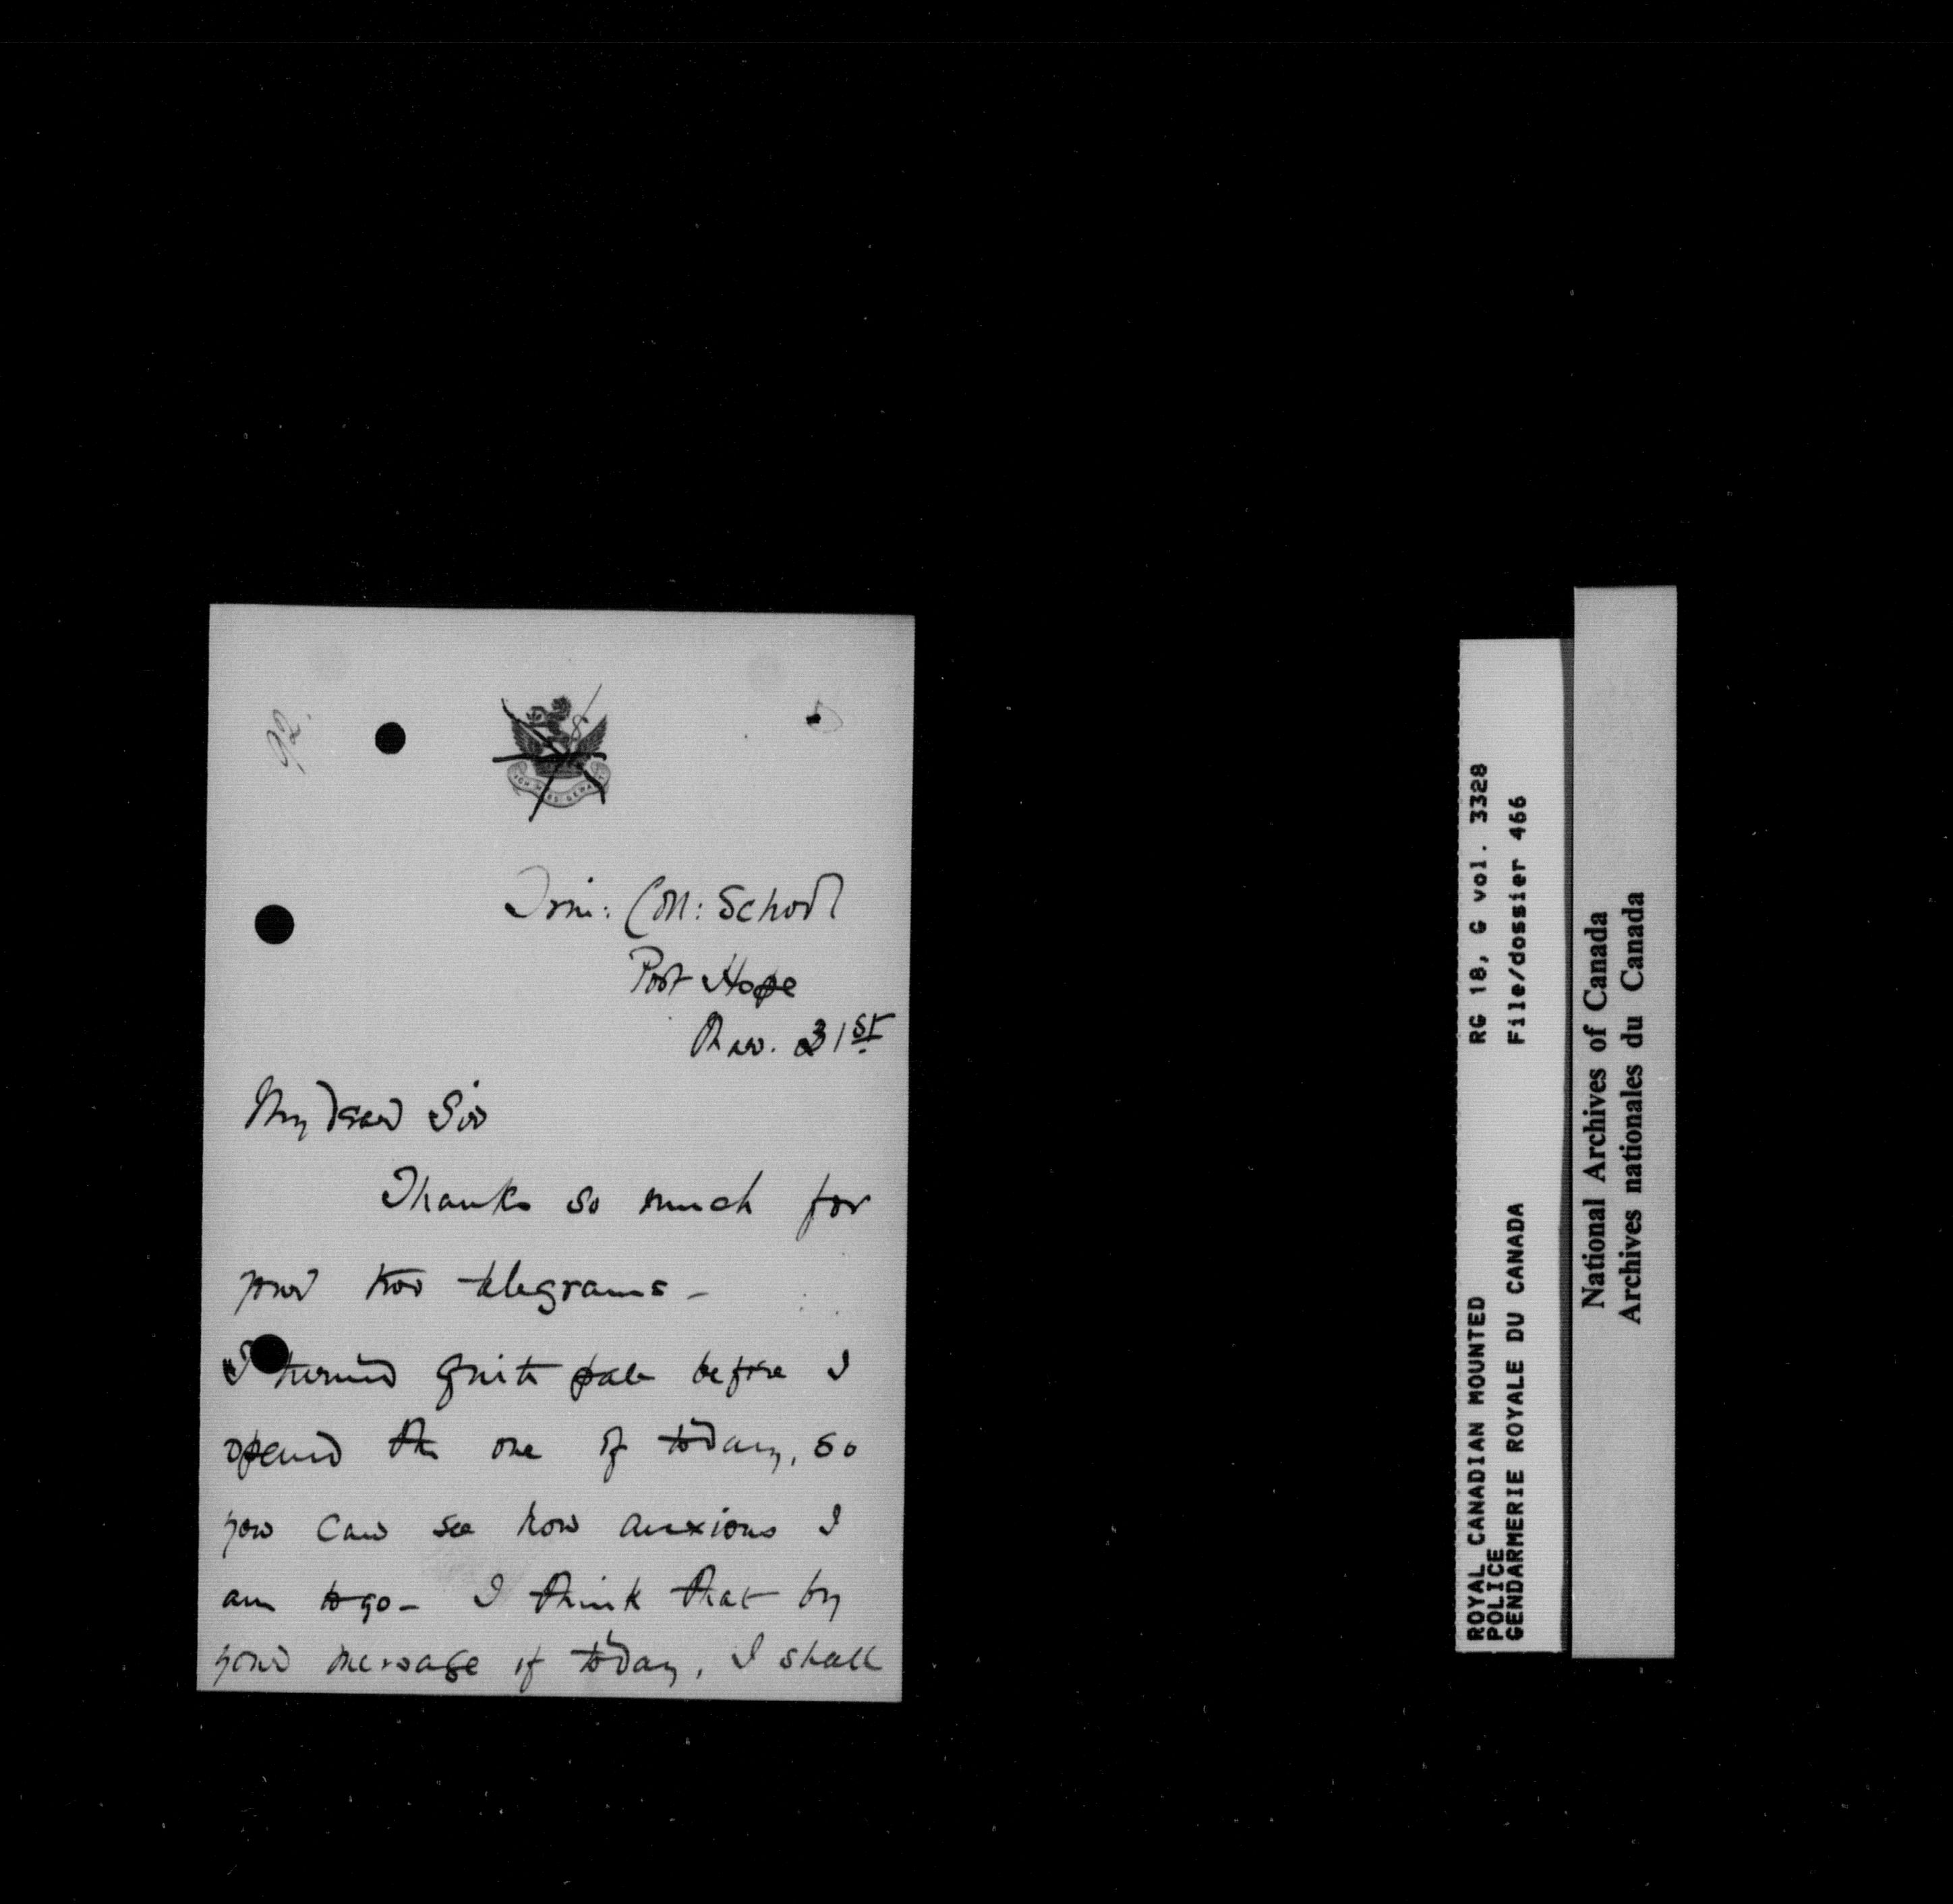 92.
Trin: Coll: School
Port Hope
31st
My dear Sir
Thanks so much for
your two telegrams -
I turned quite pale before I
opened the one of today, so
you can see how anxious I
am to go - I think that by
your message of today, I shall
RG 18, G vol. 3328
File/dossier 466
ROYAL CANADIAN MOUNTED
POLICE
GENDARMERIE ROYALE DU CANADA
National Archives of Canada
Archives nationales du Canada